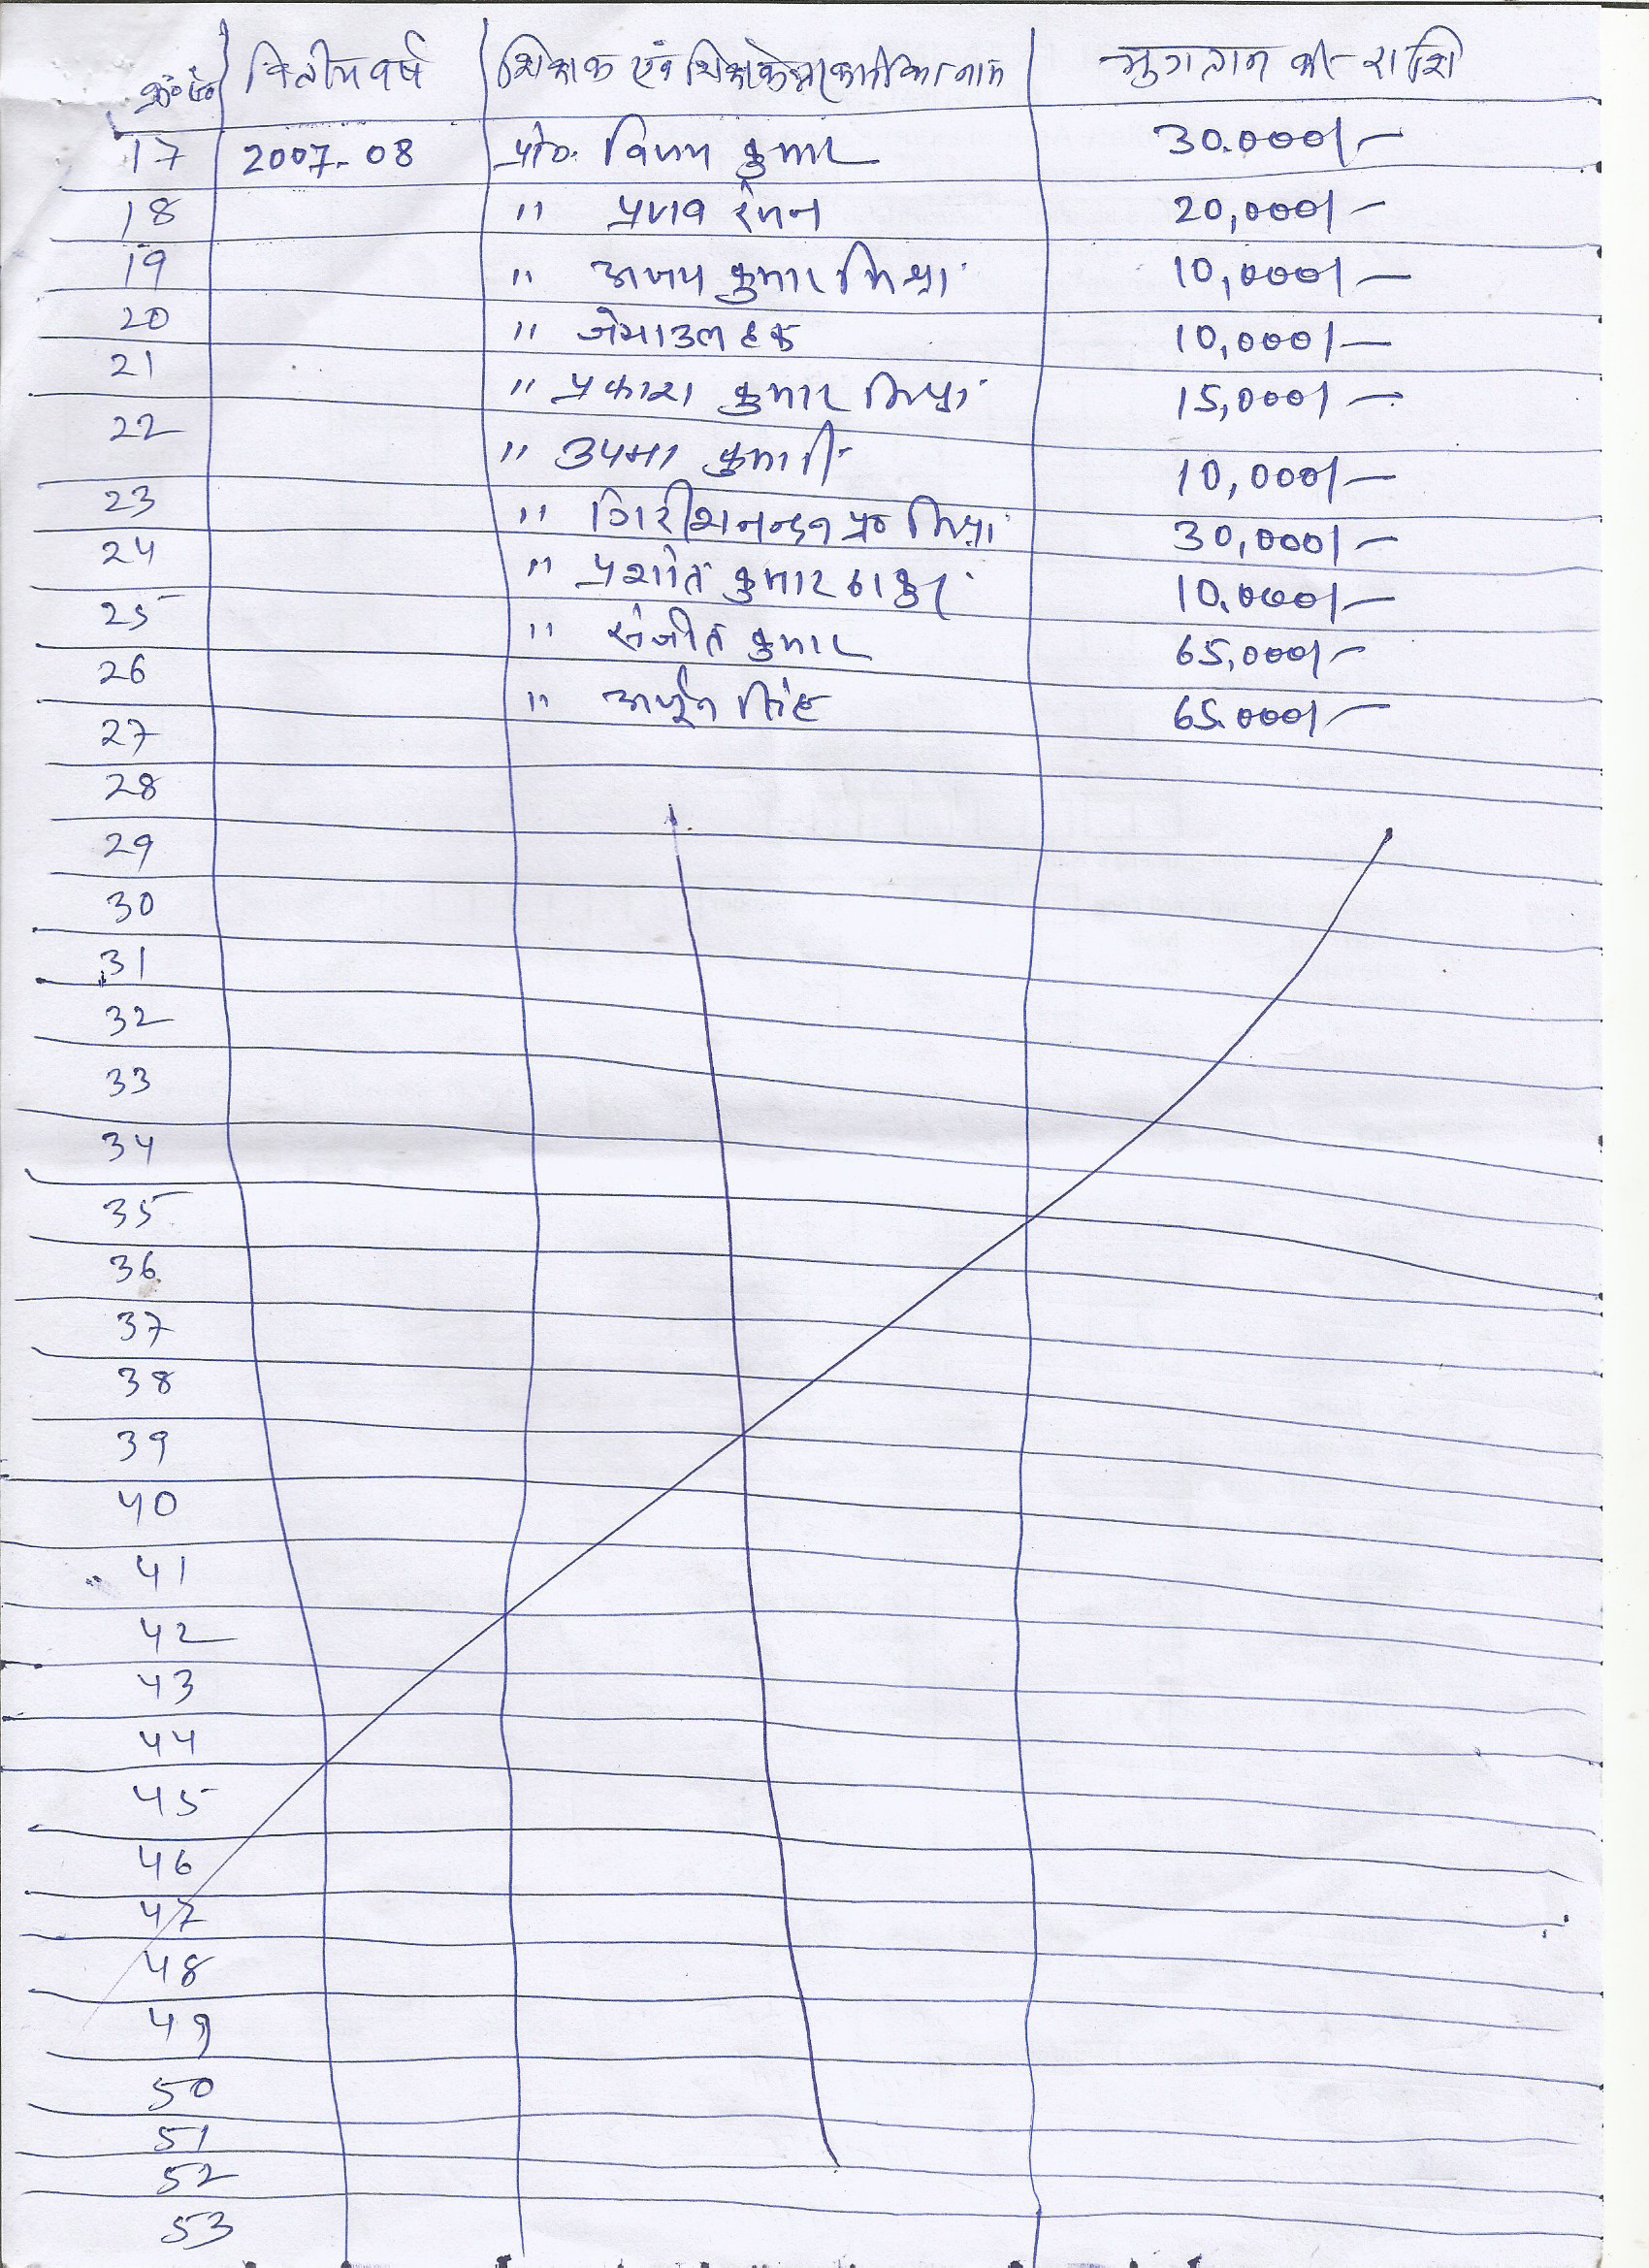 क्र०सं० वित्तीय वर्ष शिक्षक एवं शिक्षकेत्तर कर्मी का नाम भुगतान की राशि
17 2007-08 प्रो० विजय कुमार 30.000/-
18 " प्रणव रंजन 20,000/-
19 " अजय कुमार मिश्रा 10,000/-
20 " जेयाउल हक 10,000/-
21 " प्रकाश कुमार मिश्रा 15,000/-
22 " उपमा कुमारी 10,000/-
23 " गिरीशनन्दन प्र० मिश्रा 30,000/-
24 " प्रशांत कुमार ठाकुर 10.000/-
25 " संजीत कुमार 65,000/-
26 " अर्जुन सिंह 65.000/-
27
28
29
30
31
32
33
34
35
36
37
38
39
40
41
42
43
44
45
46
47
48
49
50
51
52
53